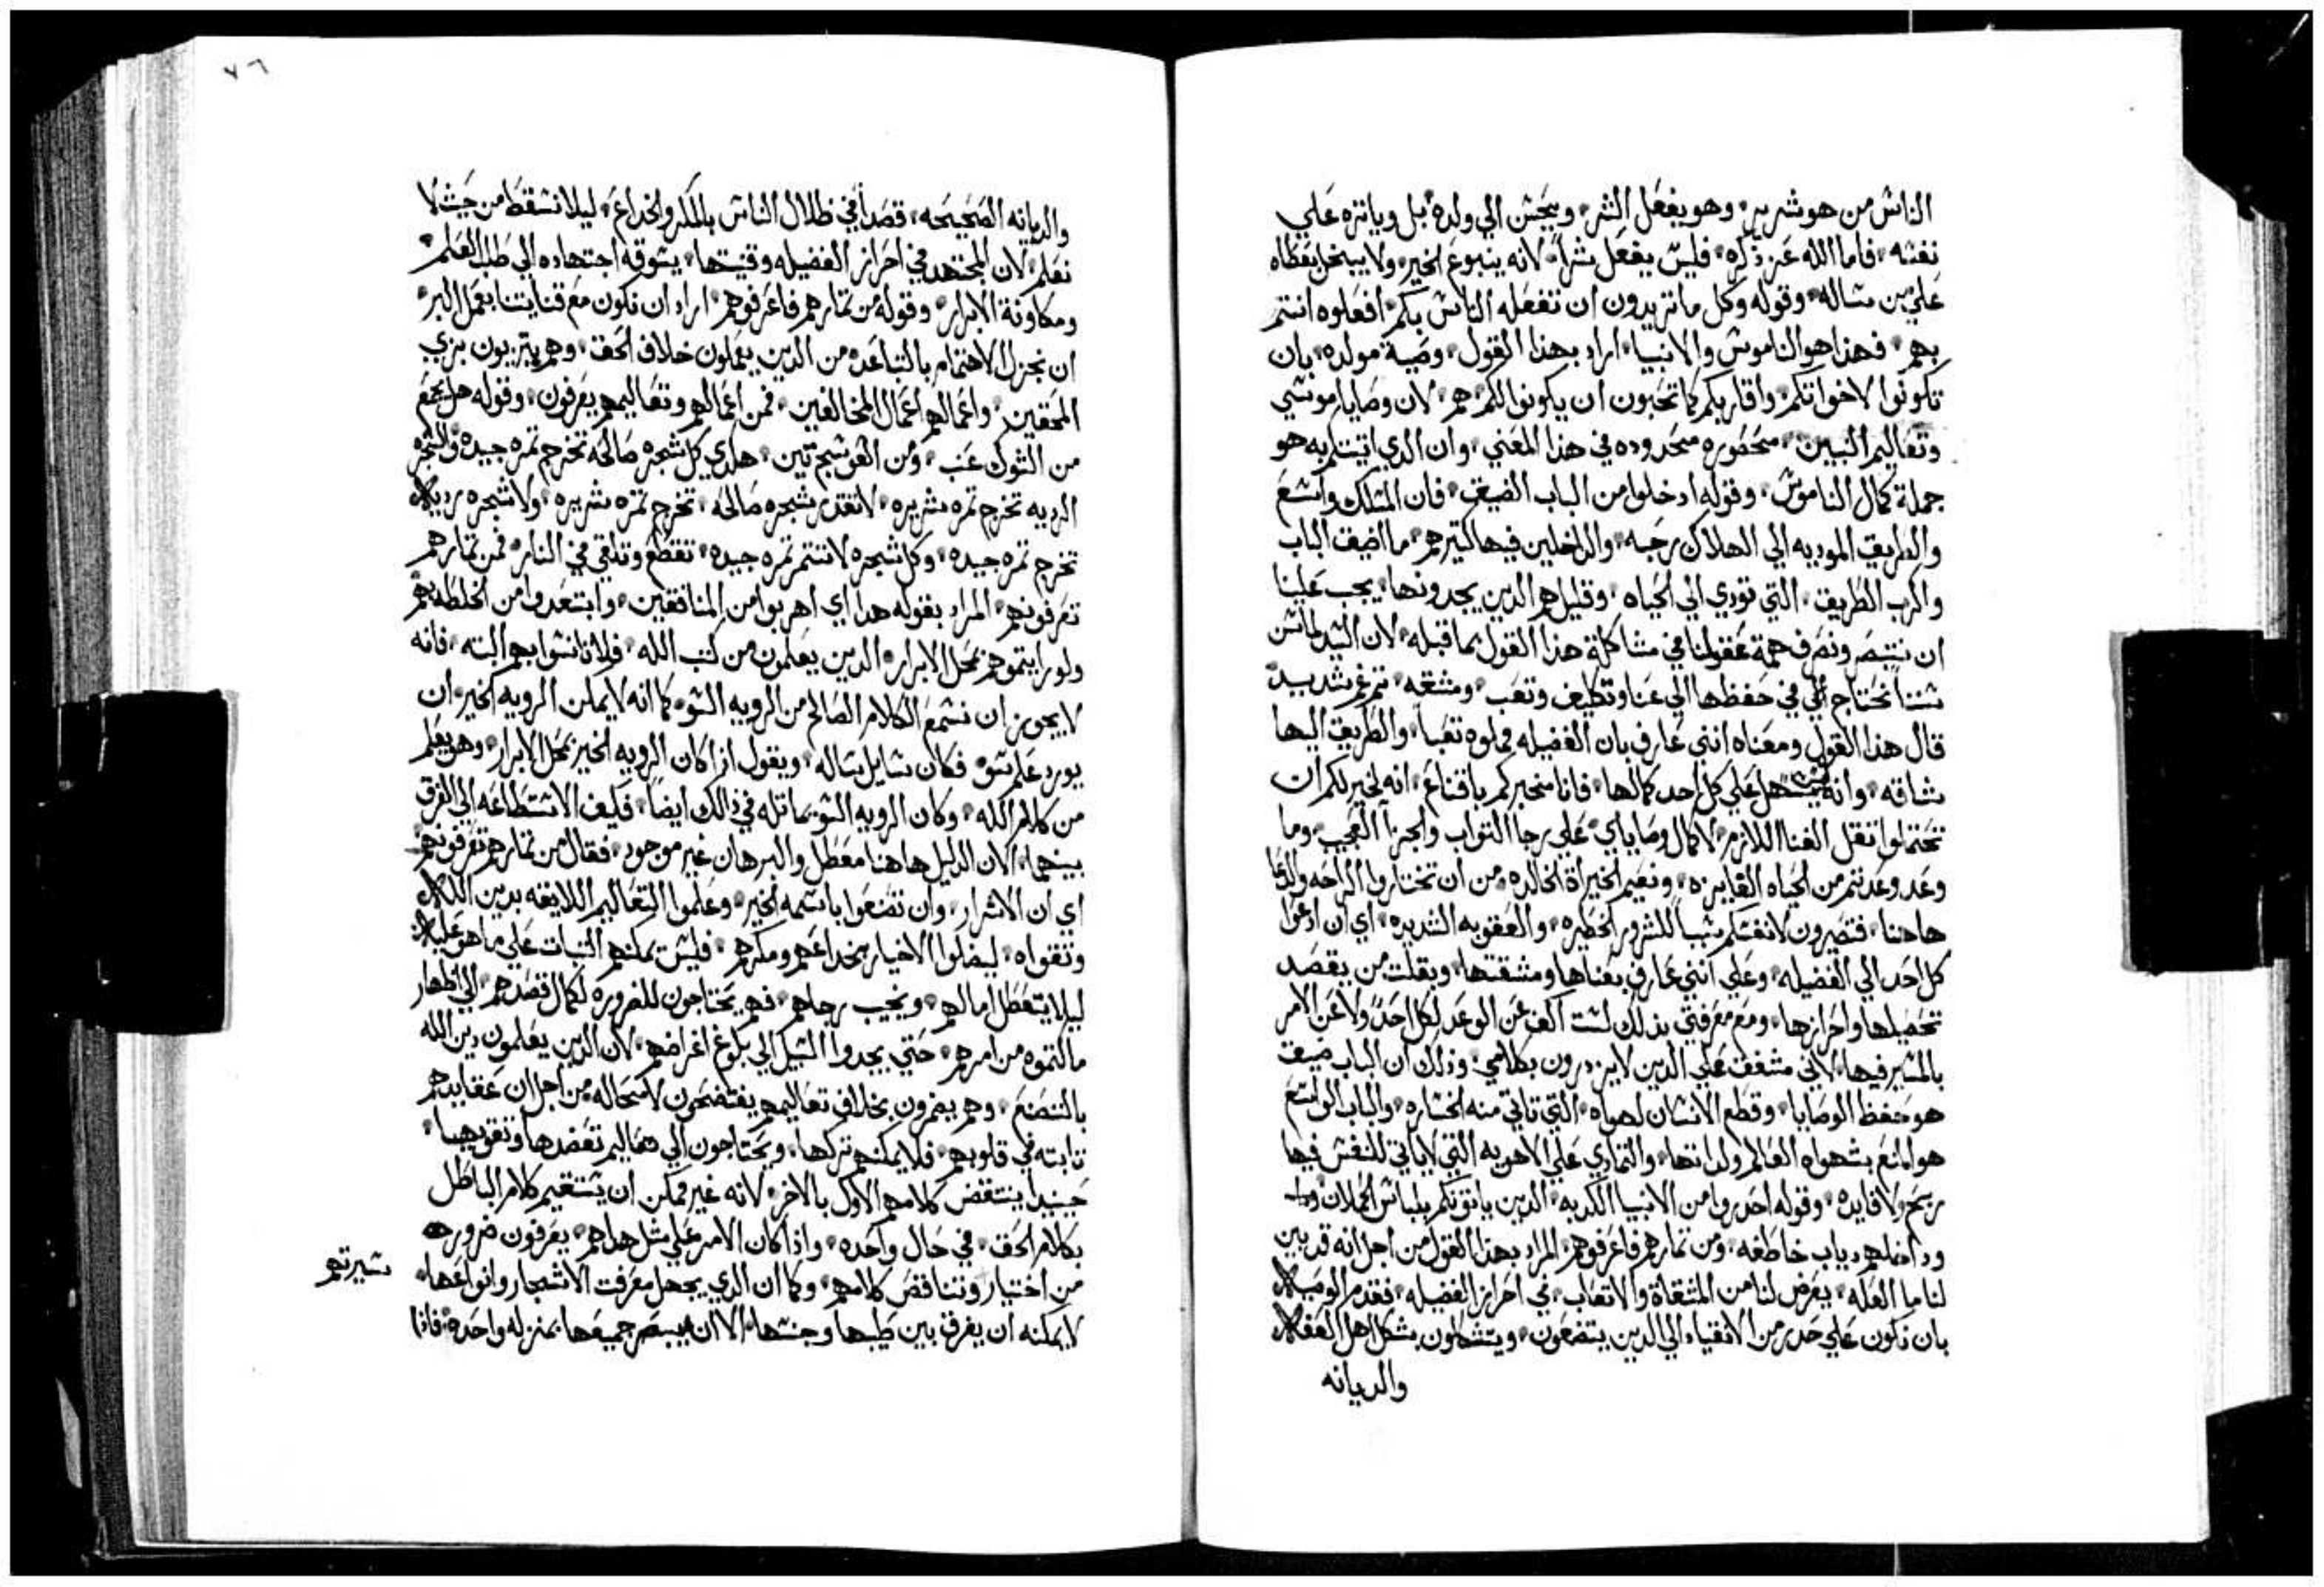 الناس من هو شرير، وهو يفعل الشر، ويحسن الي ولده، بل وياتره علي
نفسه، فاما الله عز ذكره، فليس يفعل شراً، لانه ينبوع الخير، ولا يبخل بعطاه
علي من ساله، وقوله وكل ما تريدون ان تفعله الناس بكم، افعلوه انتم
بهم، فهذا هو الناموس والانبيا، اراد بهذا القول، وصية مولده، بان
تكونوا لاخواتكم، واقاربكم كما تحبون ان يكونوا لكم، هم، لان وصايا موسي
وتعاليم النبيين، محصوره محدوده في هذا المعني، وان الدي اتيتكم به هو
جملة كمال الناموس، وقوله ادخلوا من الباب الضيق، فان المسلك واسع
والطريق الموديه الي الهلاك رحبه، والداخلين فيها كتيرهم، ما اضيق الباب
واكرب الطريق، التي تودي الي الحياه، وقليل هم الدين يجدونها، يجب علينا
ان ننتبصر ونصرف همة عقولنا في مشاكلة هذا القول بما قبله، لان السيد لما سن
سننا نحتاج الي في حفظها الي عنا وتكليف وتعب، ومشقه، تم غم شديد
قال هذا القول ومعناه انني عارف بان الفضيله مملوه تعباً، والطريق اليها
شاقه، وانه ليس سهل علي كل احد كمالها، فانا مخبركم باقناع، انه لخير لكم ان
تحتملوا تقل العنا اللازم، لاكمال وصاياي، علي رجا التواب والجزا العجيب، وما
وعد وعدتم من الحياه الفايزه، ونعيم الخيراة الخالده، من ان تختاروا الراحه والدعا
هاهنا، فتصيرون لانفسكم سبباً للشرور الخطيره، والعقوبه الشديده، اي ان ادعوا
كل احد الي الفضيله، وعلي انني عارف بعناها ومشقتها، وبقلت من يقصد
تحصيلها واحرازها، ومع معرفتي بذلك لست اكف عن الوعد لكل احد، ولا عن الامر
بالمسير فيها، لاني مشفق علي الدين لا يزدرون بكلامي، وذلك ان الباب ضيق
هو حفظ الوصايا، وقطع الانسان لهواه، التي تاتي منه الخساره، والباب الواسع
هو المتع بشهواه العالم ولداتها، والتمادي علي الاهويه التي لا ياتي للنفس فيها
ربح ولا فايده، وقوله احدروا من الانبيا الكدبه، الدين ياتونكم بلباس الحملان
وداخلهم دياب خاطفه، ومن تمارهم فاعرفوهم، المراد بهذا القول من اجل انه قد بين
لنا ما العله، يعرض لنا من المشقاة والاتعاب، في احراز الفضيله، فقدم الوصيه
بان نكون علي حدر من الانقياد الي الدين يتصنعون، ويتشكلون بشكل اهل العفاف
والديانه
٧٦
والديانه الصحيحه، قصداً في ظلال الناس بالمكر والخداع، ليلا نسقط من حيث لا
نعلم، لان المجتهد في احراز الفضيله وقنيتها، يسوقه اجتهاده الي طلب العلم
ومعاونة الابرار، وقوله من تمارهم فاعرفوهم، اراد ان نكون مع قنايتنا بعمل البر
ان نجزل الاهتمام بالتباعده من الدين يعملون خلاف الحق، وهم يتزيون بزي
المحقين، واعمالهم اعمال المخالفين، فمن اعمالهم وتعاليمهم يعرفون، وقوله هل يجمع
من الشوك عنب، ومن العوسج تين، هكدي كل شجره صالحه تخرج تمره جيده، والشجره
الرديه تخرج تمره شريره، لا تقدر شجره صالحه، تخرج تمره شريره، ولا شجره رديه
تخرج تمره جيده، وكل شجره لا تتمر تمره جيده، تقطع وتلقي في النار، فمن تمارهم
تعرفونهم، المراد بقوله هدا اي اهربوا من المنافقين، وابتعدوا من الخلطه بهم
ولو رايتموهم بمحل الابرار، الدين يعلمون من كتب الله، فلا تانسوا بهم البته، فانه
لا يجوز ان نسمع الكلام الصالح من الرويه السو، كما انه لا يمكن الرويه الخير، ان
يورد علم سو، فكان سايل يساله، ويقول ادا كان الرويه الخير بمحل الابرار، وهو يعلم
من كلام الله، وكان الرويه السو يماتله في ذالك ايضاً، فكيف الاستطاعه الي الفرق
بينهما، لان الدليل هاهنا معطل والبرهان غير موجود، فقال من تمارهم تعرفونهم
اي ان الاشرار، وان تصنعوا باسمه الخير، وعلموا التعاليم اللايقه بدين الله
وتقواه، ليضلوا الاخيار بخداعهم ومكرهم، فليس يمكنهم التبات علي ما هو عليه
ليلا يتعطل امالهم، ويخيب رجاهم، فهم يحتاجون للضروره لكمال قصدهم، الي اظهار
ما كتموه من امرهم، حتي يجدوا السبيل الي بلوغ اغراضهم، لان الدين يعلمون دين الله
بالتصنع، وهم يضمرون بخلاف تعاليمهم يفتضحون لا محاله، من اجل ان عقايدهم
تابته في قلوبهم، فلا يمكنهم تركها، ويحتاجون الي تعاليم تعضدها وتقويها
حينيدا ينتقض كلامهم الاول بالاخر، لانه غير ممكن ان يستقيم كلام الباطل
بكلام الحق، في حال واحده، واذا كان الامر علي مثل هداهم، يعرفون ضروره
من اختيار وتناقض كلامهم، وكما ان الدي يجهل معرفت الاشجار وانواعها،
سيرتهم
لا يمكنه ان يفرق بين طيبها وجنسها، الا ان يبصر جميعها بمنزله واحده، فادا